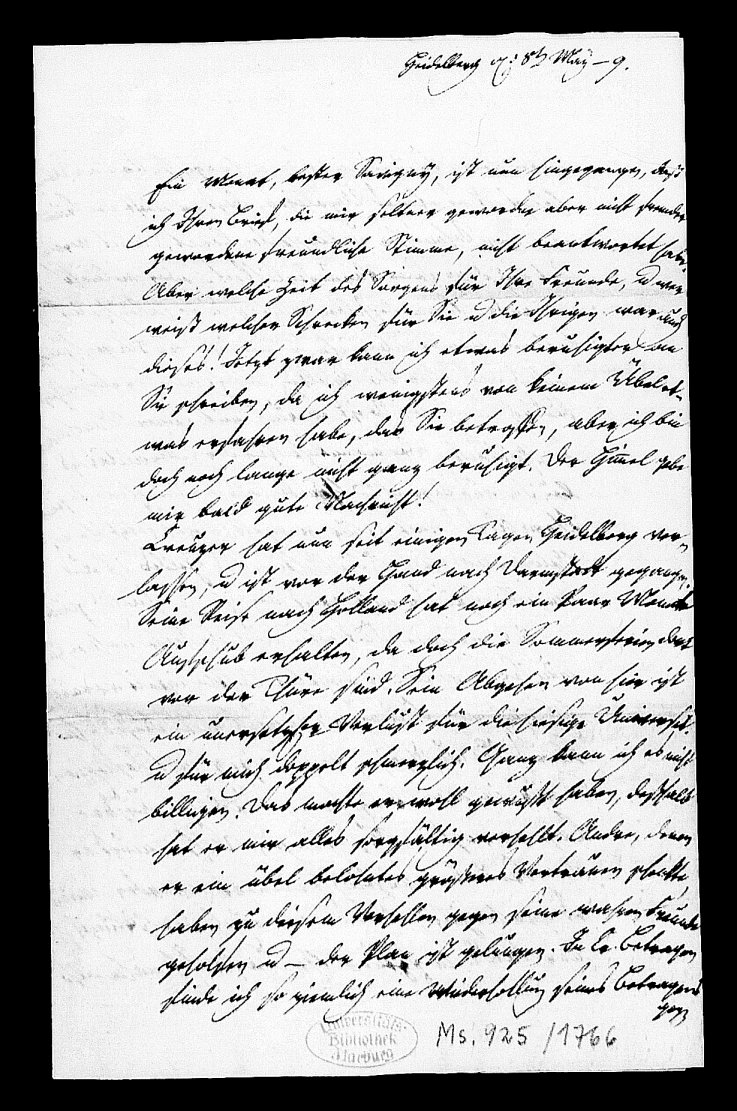 Heidelberg d. 8ten May – 9.
Ein Monat, bester Savigny, ist nun hingegangen, daß
ich Ihren Brief, die mir seltner gewordne aber nicht fremder
gewordene freundliche Stimme, nicht beantwortet habe.
Aber welche Zeit des Sorgens für Ihre Freunde, u wer
weiß welcher Schrecken für Sie u die Ihrigen war auch
dieses! Jetzt zwar kann ich etwas beruhigter an
Sie schreiben, da ich wenigstens von keinem Übel et-
was erfahren habe, das Sie betroffen, aber ich bin
doch noch lange nicht ganz beruhigt. Der Himel gebe
mir bald gute Nachricht!
Creuzer hat nun seit einigen Tagen Heidelberg ver
lassen, u ist vor der Hand nach Darmstadt gegangen.
Seine Reise nach Holland hat noch ein Paar Monate
Aufschub erhalten, da doch die Sommerferien dort
vor der Thüre sind. Sein Abgehen von hier ist
ein unersetzlicher Verlust für die hiesige Universit.
u für mich doppelt schmerzlich. Ganz kann ich es nicht
billigen. Das mochte er wohl gewußt haben, deshalb
hat er mir alles sorgfältig verhehlt. Andre, denen
er ein übel belohntes größeres Vertrauen schenkte,
haben zu diesem Verhehlen gegen seine wahren Freunde
geholfen u – der Plan ist gelungen. In Cr. Betragen
finde ich so ziemlich eine Wiederholung seines Betragens
gegen
Universitäts-
Bibliothek
Marburg
Ms. 925 / 1766